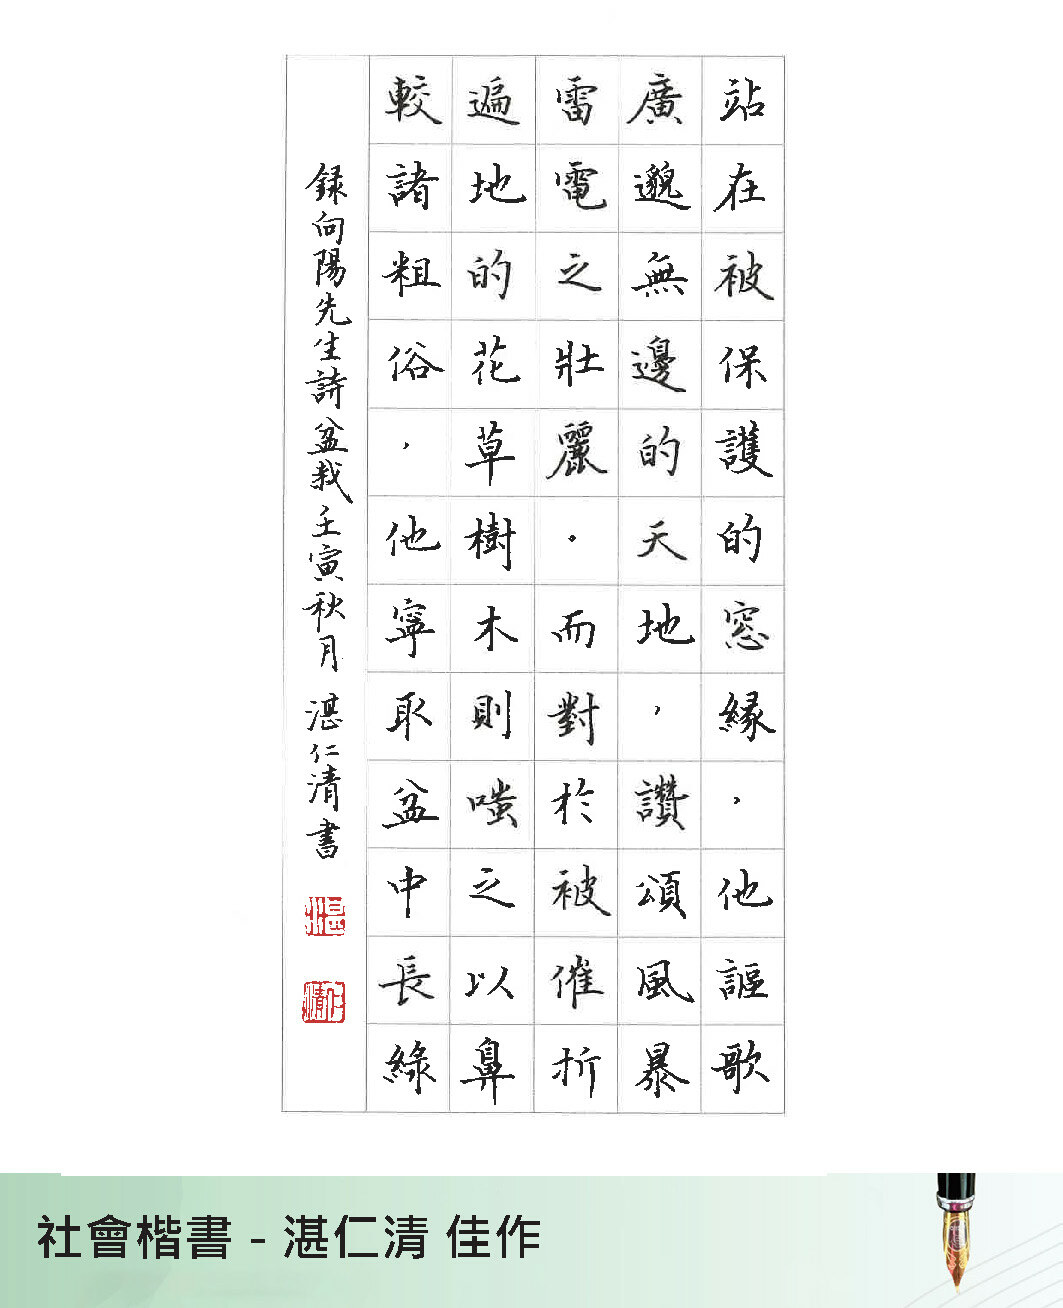 站在被保護的窓緣，他謳歌
廣邈無邊的天地，讚頌風暴
雷電之壯麗．而對於被催折
遍地的花草樹木則嗤之以鼻
較諸粗俗，他寧取盆中長綠
録向陽先生詩盆栽壬寅秋月 湛仁清書
湛
仁清
社會楷書 - 湛仁清 佳作